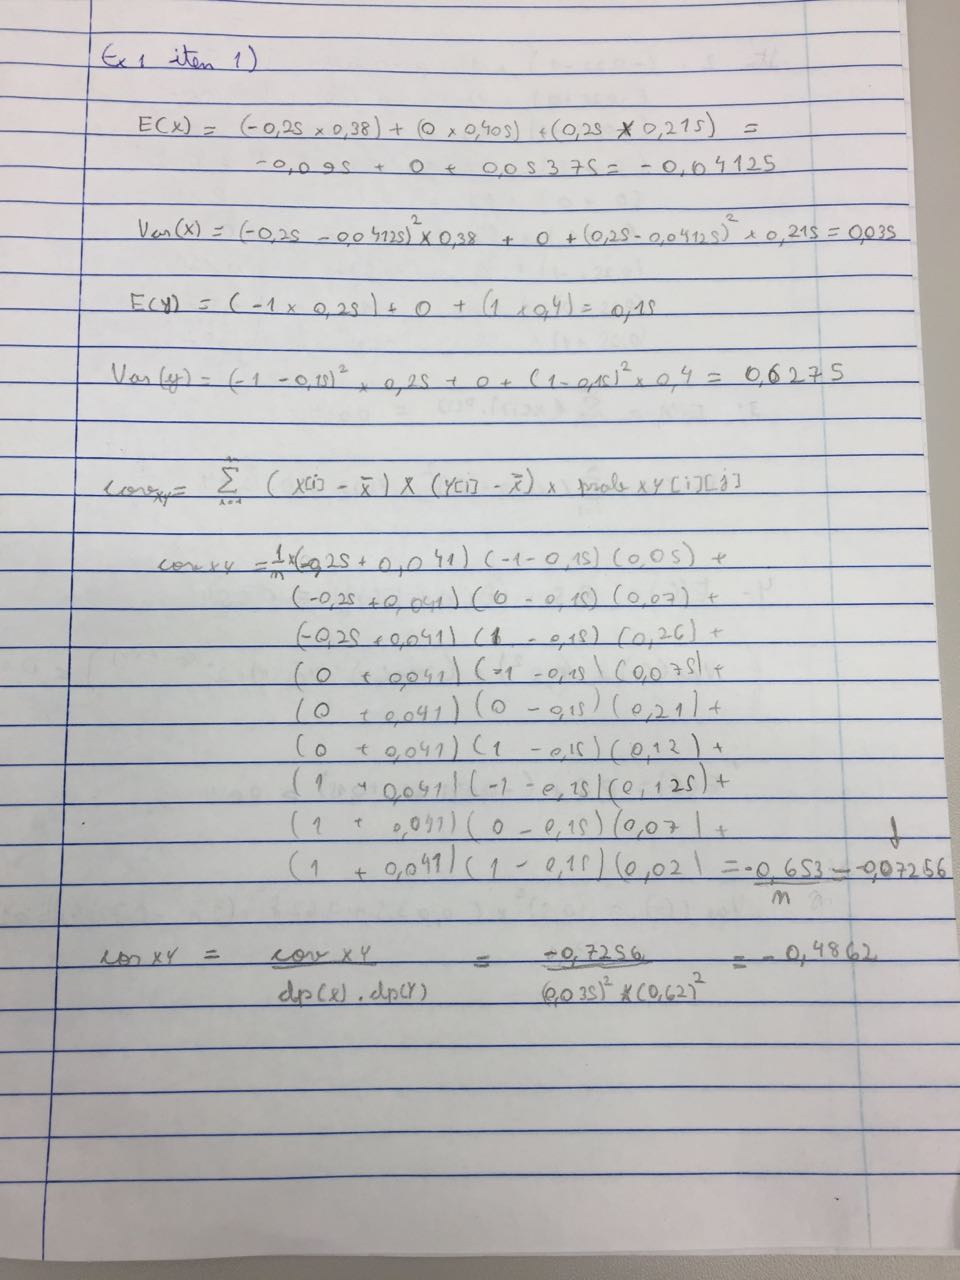 Ex 1 item 1)
E(x) = (-0,25 x 0,38) + (0 x 0,405) + (0,25 x 0,215) =
-0,095 + 0 + 0,05375 = -0,04125
Var(x) = (-0,25 - 0,04125)² x 0,38 + 0 + (0,25 - 0,04125)² x 0,215 = 0,035
E(y) = (-1 x 0,25) + 0 + (1 x 0,4) = 0,15
Var(y) = (-1 - 0,15)² x 0,25 + 0 + (1 - 0,15)² x 0,4 = 0,6275
cov xy = Σ (x[i] - x̄) x (y[i] - x̄) x prob xy[i][j]
cov xy = 1/n x (-0,25 + 0,041) (-1 - 0,15) (0,05) +
(-0,25 + 0,041) (0 - 0,15) (0,07) +
(-0,25 + 0,041) (1 - 0,15) (0,26) +
(0 + 0,041) (-1 - 0,15) (0,075) +
(0 + 0,041) (0 - 0,15) (0,21) +
(0 + 0,041) (1 - 0,15) (0,12) +
(1 + 0,041) (-1 - 0,15) (0,125) +
(1 + 0,041) (0 - 0,15) (0,07) +
(1 + 0,041) (1 - 0,15) (0,02) = -0,653/n = -0,07256
cor xy = cov xy / dp(x) . dp(y) = -0,7256 / (0,035)² x (0,62)² = -0,4862